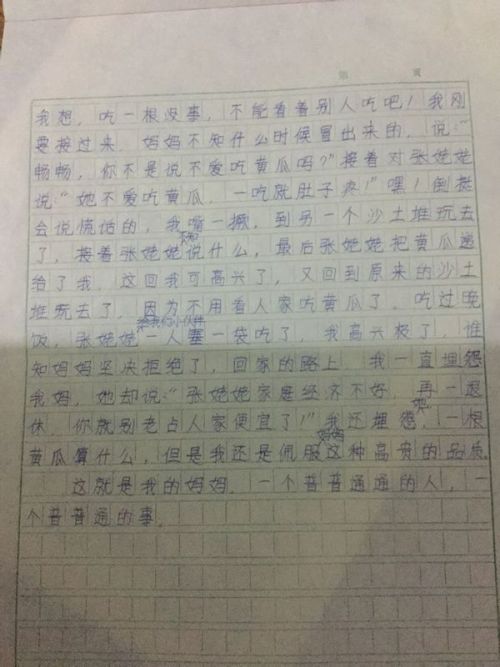 第 页
我想，吃一根没事，不能看着别人吃吧！我刚
要接过来，妈妈不知什么时候冒出来的，说：“
畅畅，你不是说不爱吃黄瓜吗？”接着对张姥姥
说：“她不爱吃黄瓜，一吃就肚子疼！”嘿！倒挺
会说慌话的，我嘴一撅，到另一个沙土堆玩去
了，接着张姥姥不知说什么，最后张姥姥把黄瓜递
给了我，这回我可高兴了，又回到原来的沙土
堆玩去了，因为不用看人家吃黄瓜了。吃过晚
饭，张姥姥给我们小伙伴一人塞一袋吃了，我高兴极了，谁
知妈妈坚决拒绝了，回家的路上，我一直埋怨
我妈，她却说：“张姥姥家庭经济不好，再一退
休，你就别老占人家便宜了！”我还埋怨她，一根
黄瓜算什么，但是我还是佩服妈妈这种高贵的品质
这就是我的妈妈，一个普普通通的人，一
个普普通的事。